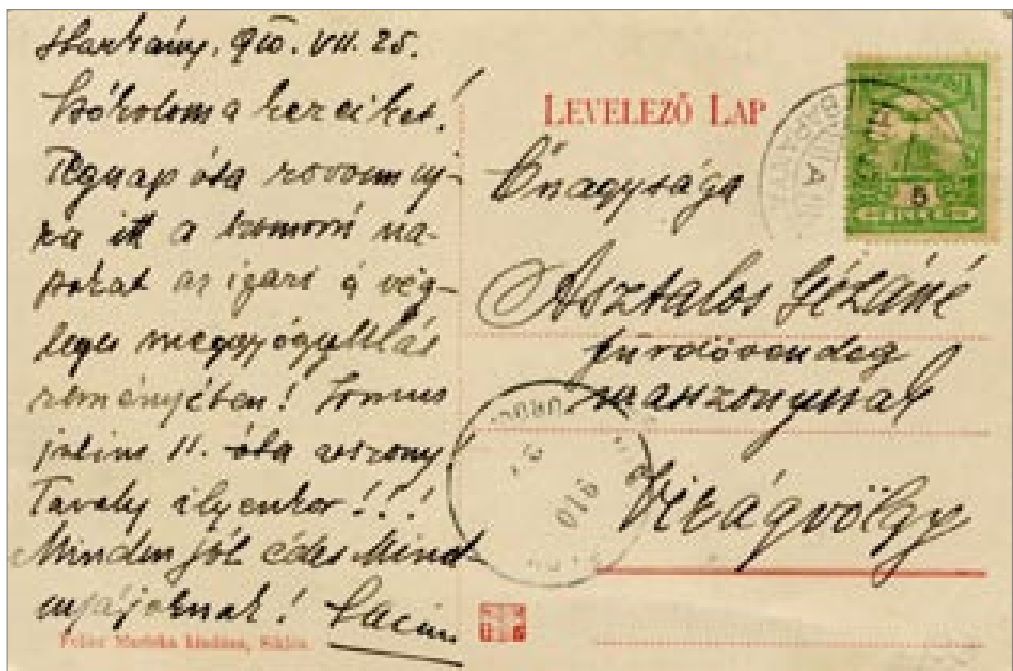 Harkány, 910. VII. 25.
Kókolom a kezeiket!
Tegnap óta rovom uj-
ra itt a szomorú na-
pokat az igazi é vég-
leges meggyógyullás
reményében!
julius 11. óta asszony
Tavaly ilyenkor!!!
Minden jót édes Mind-
nyájoknak!
Feller Mariska kiadása, Siklós.
LEVELEZŐ LAP
Őnagysága
Asztalos Gézáné
fürdövendég
Virágvölgy
5
910